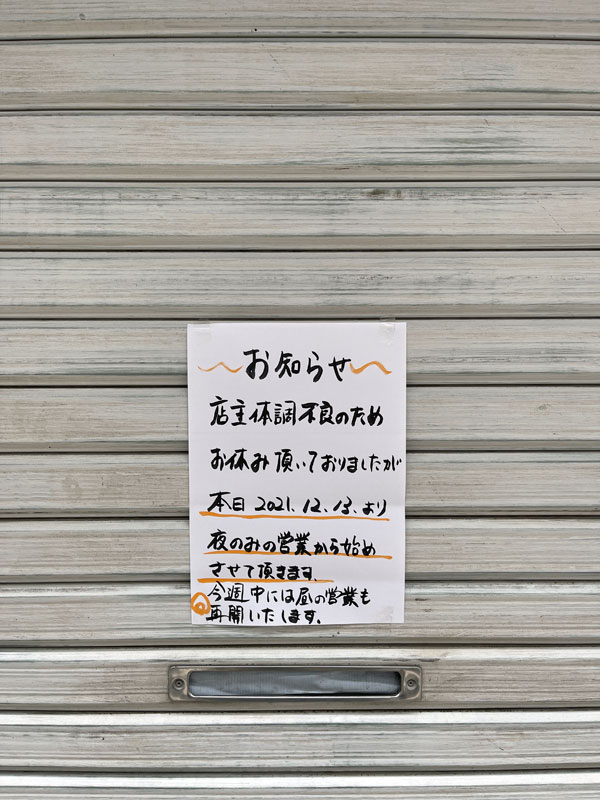 お知らせ
店主体調不良のため
お休み頂いておりましたが
本日 2021. 12. 13. より
夜のみの営業から始め
させて頂きます.
今週中には昼の営業も
再開いたします.